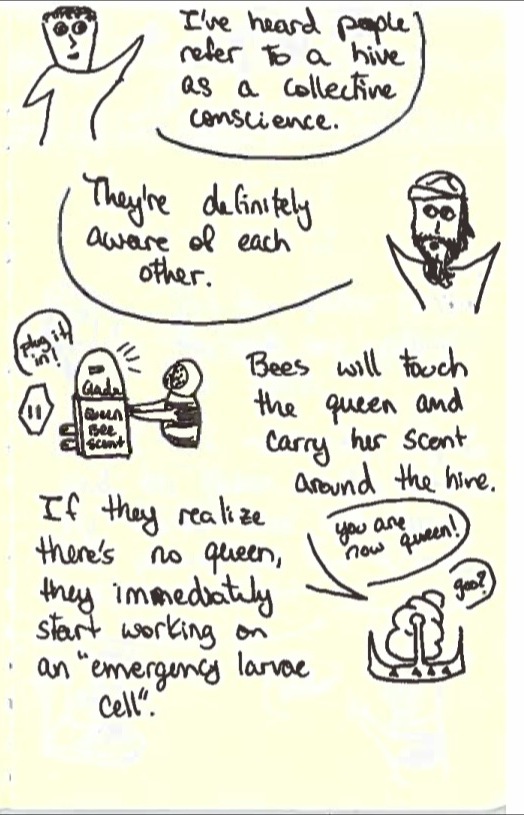 I've heard people
refer to a hive
as a collective
conscience.
They're definitely
aware of each
other.
plug it
in!
Glade
Queen
Bee
Scent
Bees will touch
the queen and
carry her scent
around the hive.
If they realize
there's no queen,
they immediately
start working on
an "emergency larvae
cell".
you are
now queen!
goo?